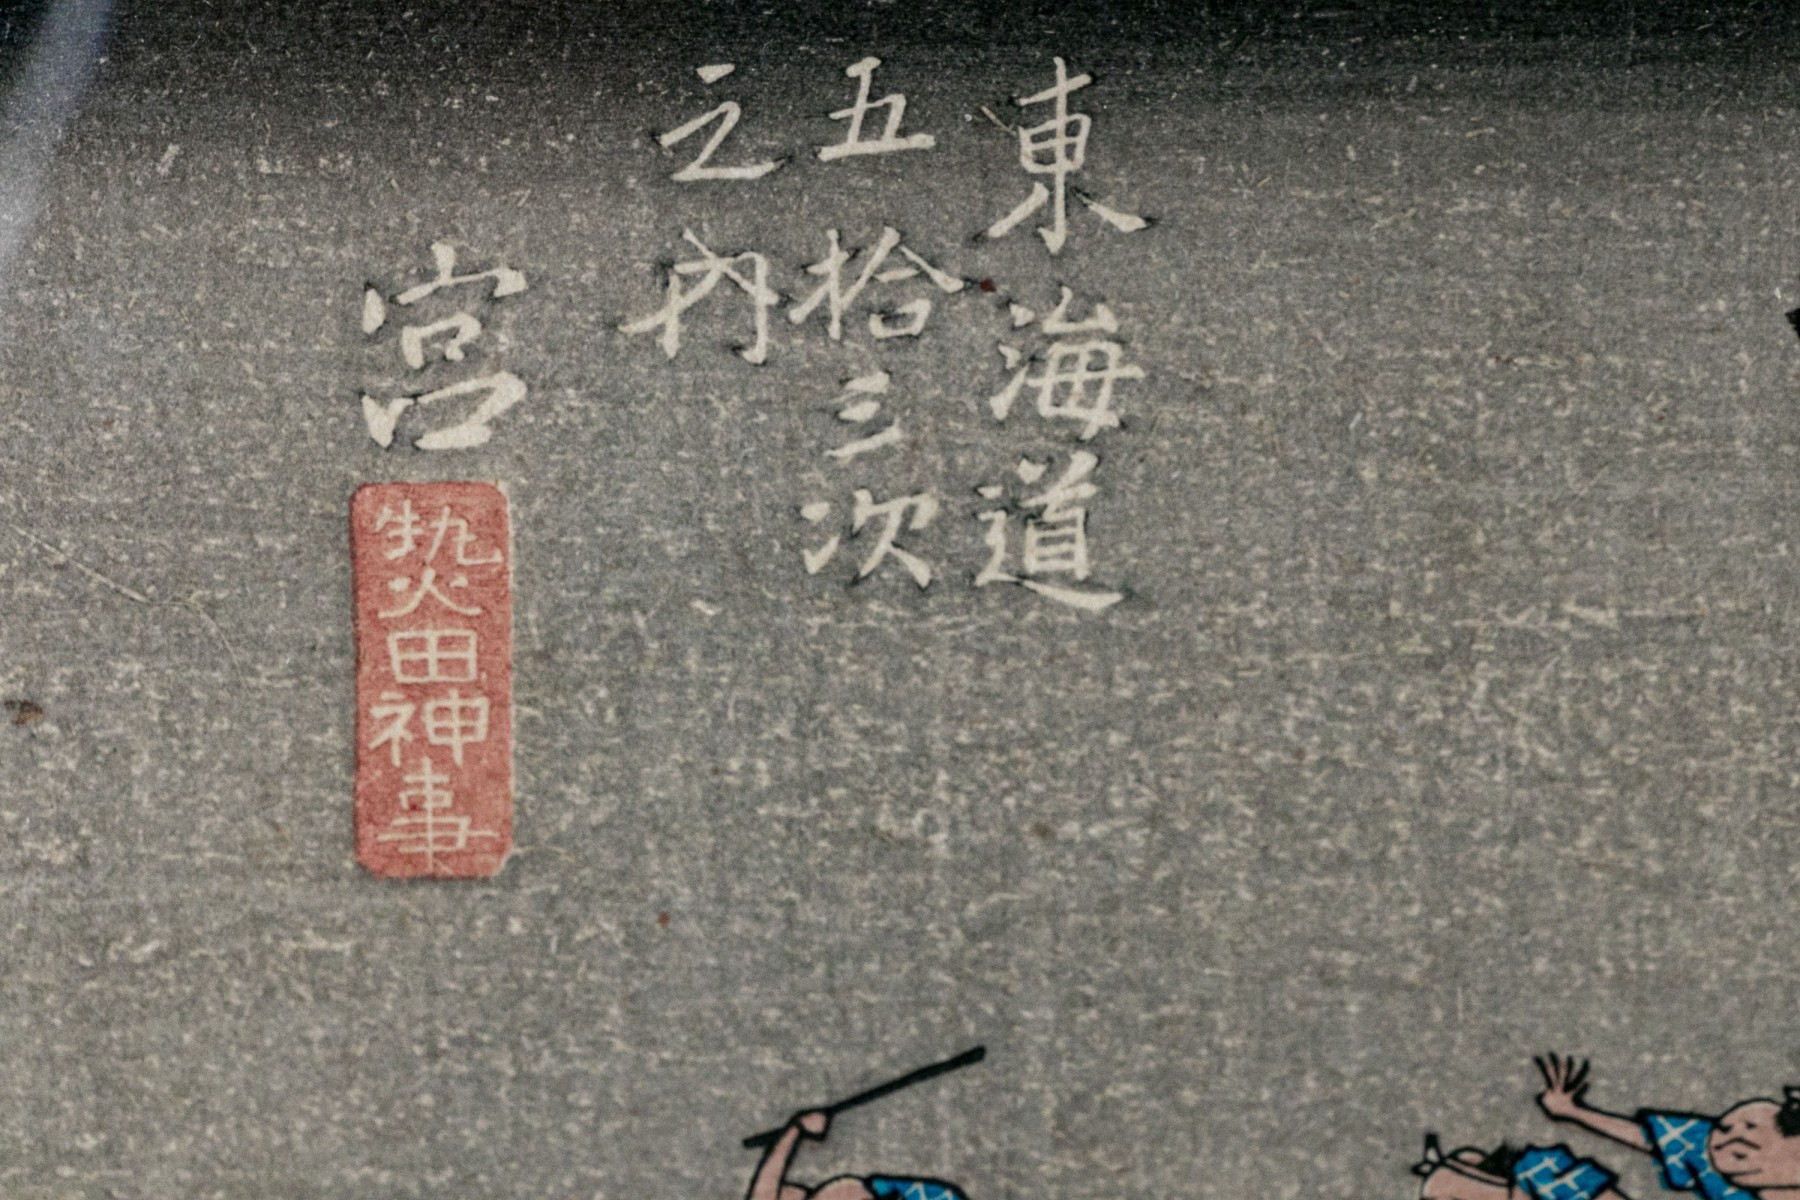 東海道
五拾三次
之内
宮
熱田神事